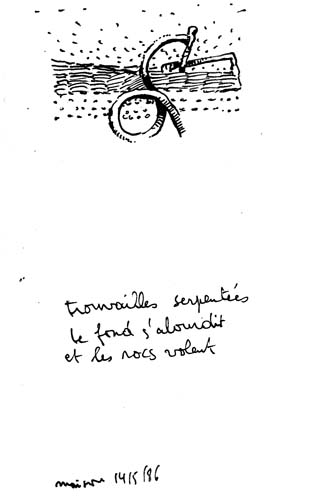 trouvailles serpentées
le fond s'alourdit
et les rocs volent
maison 14/5/86